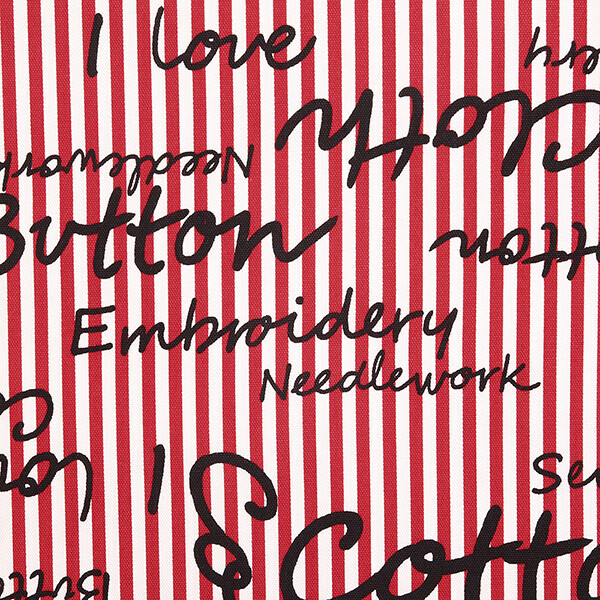 I love
ry
Cloth
Needlework
Button
tton
Embroidery
Needlework
I lov
Se
& Cotto
Butt